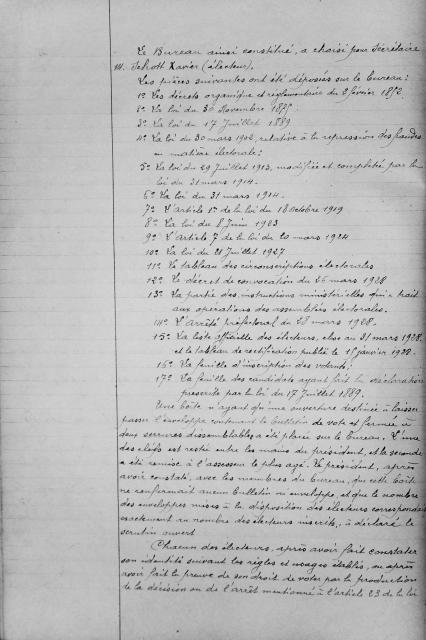 Le Bureau ainsi constitué, a choisi pour Secrétaire
M. Schott Xavier (électeur).
Les pièces suivantes ont été déposés sur le bureau :
1º Les décrets organique et réglementaire du 2 février 1852
2º La loi du 30 Novembre 1875
3º La loi du 17 Juillet 1889
4º La loi du 30 mars 1902, relative à la répression des fraudes
en matière électorale ;
5º La loi du 29 Juillet 1913, modifiée et complétée par la
loi du 31 mars 1914.
6º La loi du 31 mars 1914.
7º L'Article 1er de la loi du 18 octobre 1919
8º La loi du 8 Juin 1923
9º L'Article 7 de la loi du 20 mars 1924
10º La loi du 21 Juillet 1927
11º Le tableau des circonscriptions électorales
12º Le décret de convocation du 26 mars 1928
13º La partie des instructions ministérielles qui a trait
aux opérations des assemblées électorales.
14º L'Arrêté préfectoral du 28 mars 1928.
15º La liste officielle des électeurs, close au 31 mars 1928.
et le tableau de rectification publié le 15 janvier 1928.
16º La feuille d'inscription des votants ;
17º La feuille des candidats ayant fait la déclaration
prescrite par la loi du 17 Juillet 1889.
Une boîte n'ayant qu'une ouverture destinée à laisser
passer l'enveloppe contenant le bulletin de vote et fermée à
deux serrures dissemblables a été placée sur le bureau. L'une
des clefs est restée entre les mains du président, et la seconde
a été remise à l'assesseur le plus âgé. Le président, après
avoir constaté, avec les membres du bureau, que cette boîte
ne renfermait aucun bulletin ou enveloppe, et que le nombre
des enveloppes mises à la disposition des électeurs correspondait
exactement au nombre des électeurs inscrits, a déclaré le
scrutin ouvert
Chacun des électeurs, après avoir fait constater
son identité suivant les règles et usages établis, ou après
avoir fait la preuve de son droit de voter par la production
de la décision ou de l'arrêt mentionné à l'article 23 de la loi